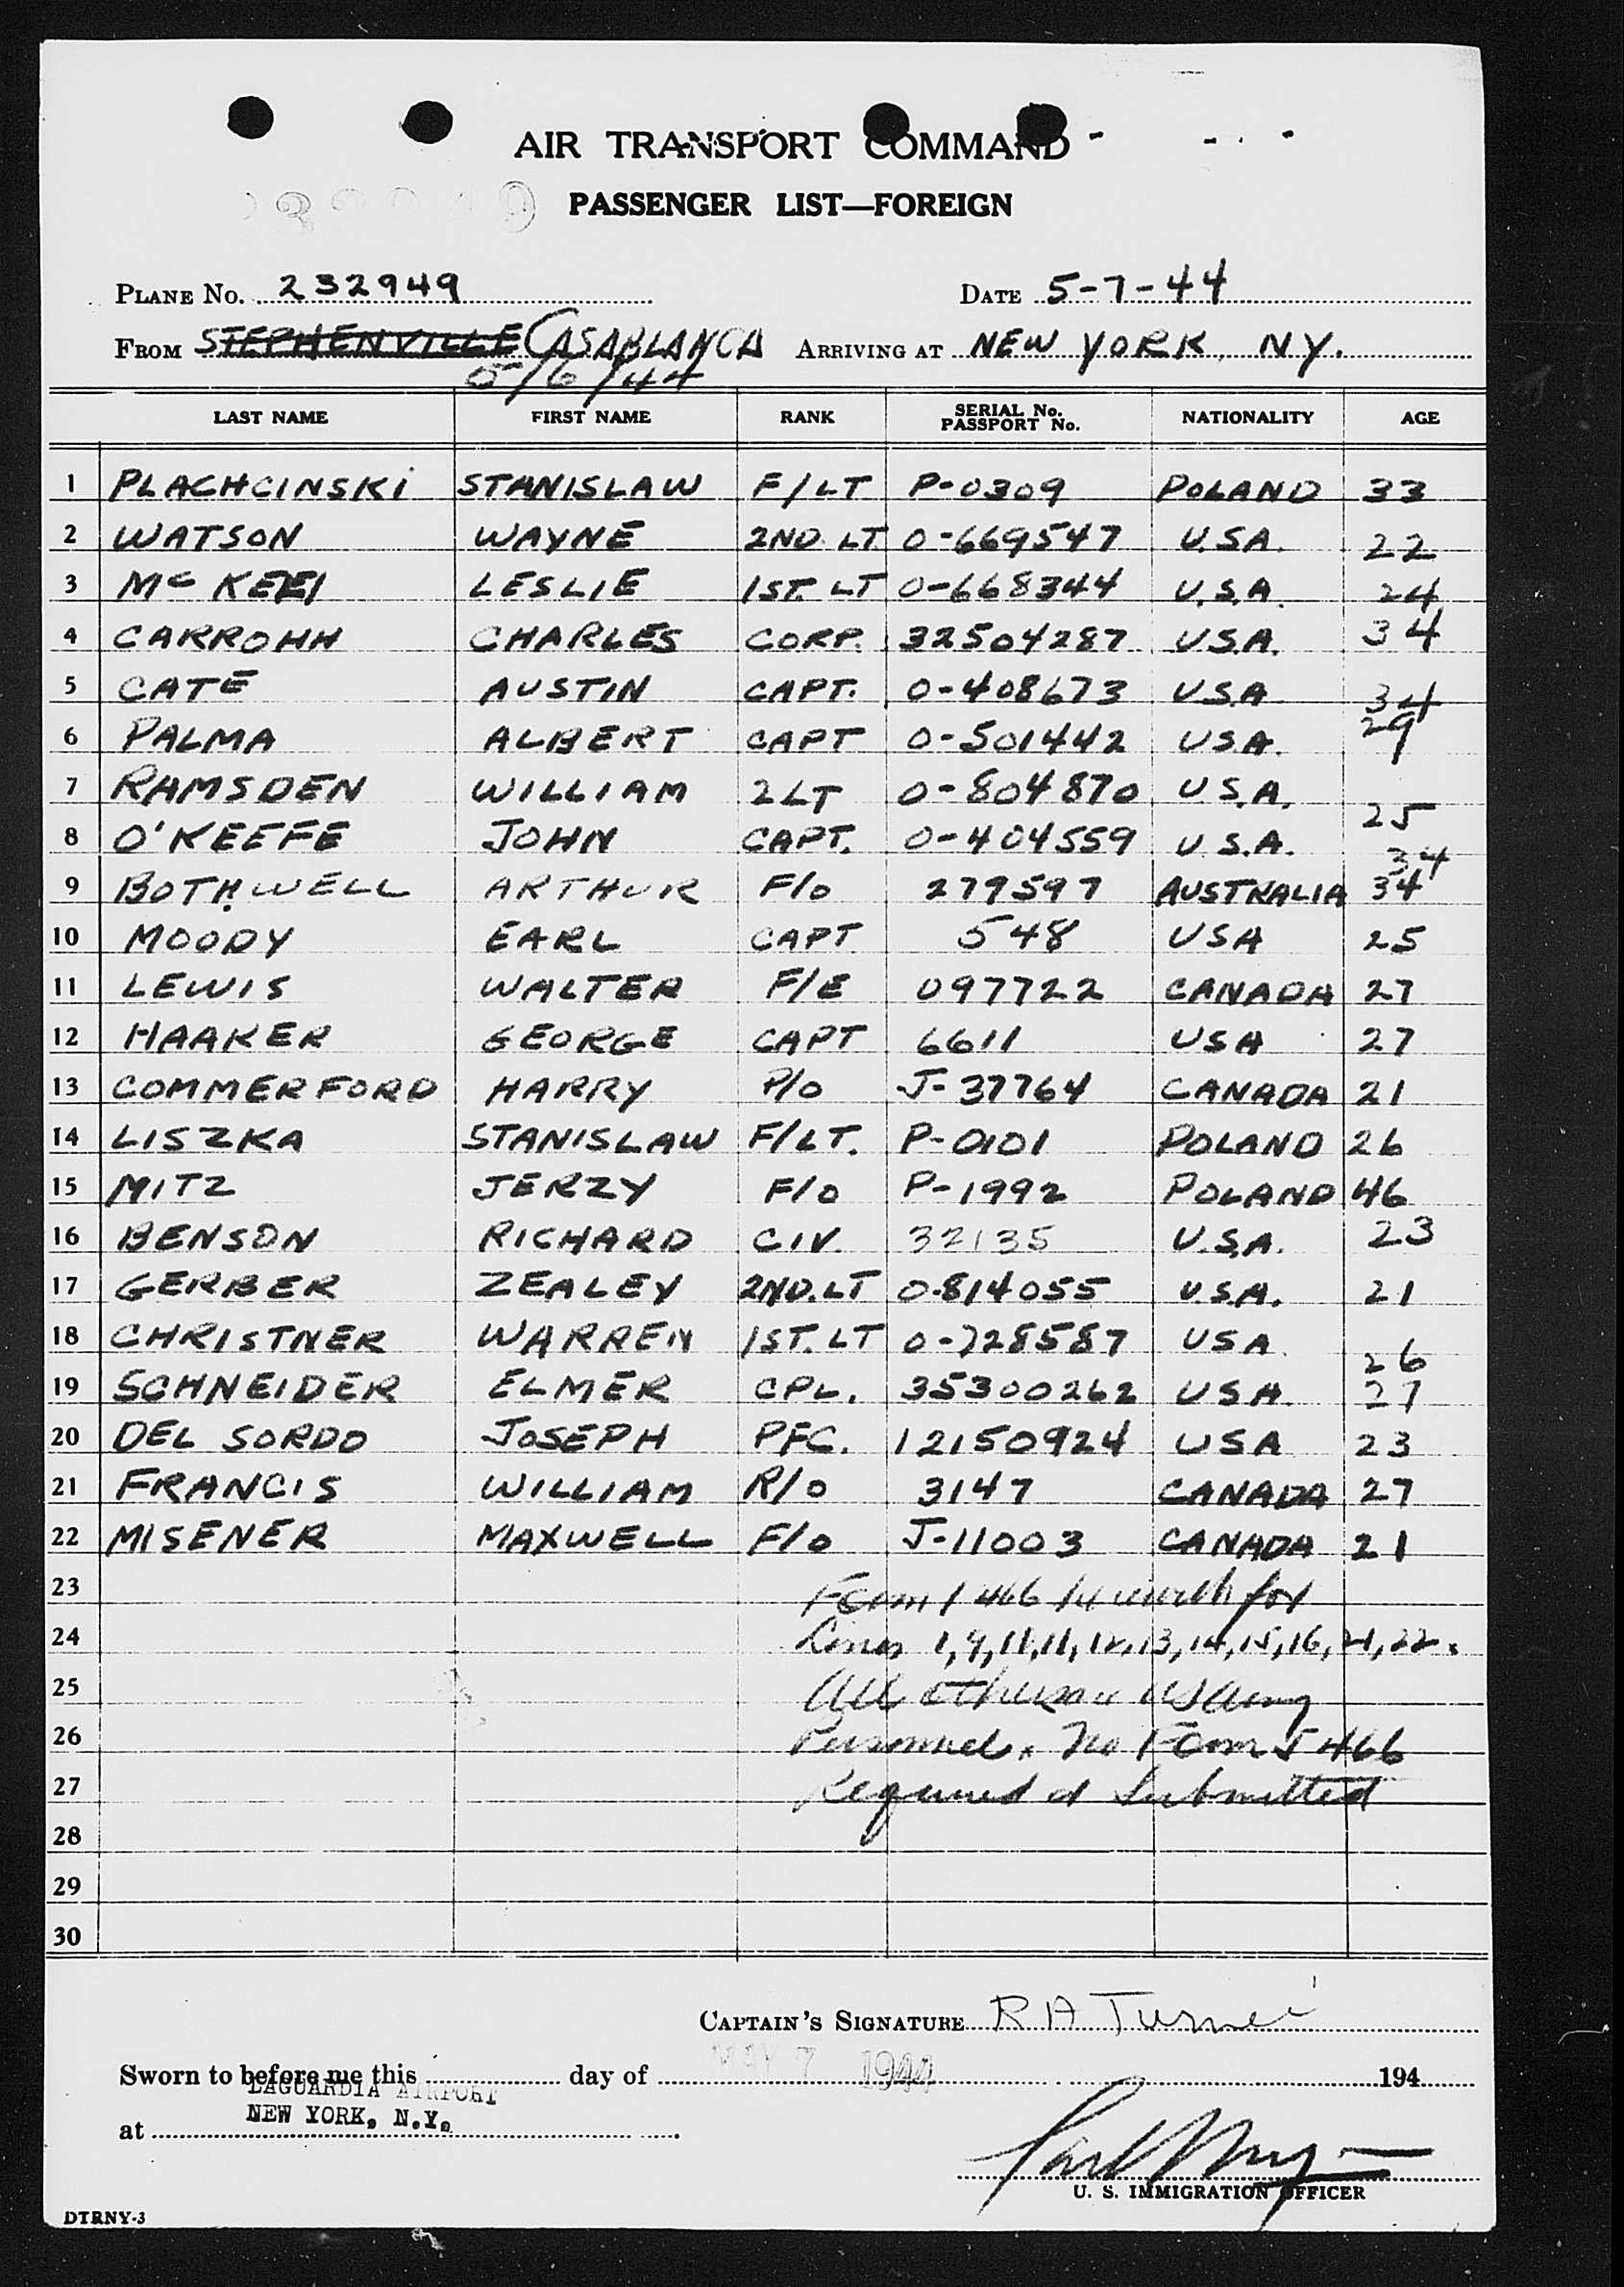 AIR TRANSPORT COMMAND
PASSENGER LIST—FOREIGN
PLANE No. 232949 DATE 5-7-44
FROM STEPHENVILLE CASABLANCA ARRIVING AT NEW YORK, NY.
5/6/44
LAST NAME FIRST NAME RANK SERIAL No. PASSPORT No. NATIONALITY AGE
1 PLACHCINSKI STANISLAW F/LT P-0309 POLAND 33
2 WATSON WAYNE 2ND LT. 0-669547 U.S.A. 22
3 McKEE LESLIE 1ST. LT 0-668344 U.S.A. 24
4 CARROHH CHARLES CORP. 32504287 U.S.A. 34
5 CATE AUSTIN CAPT. 0-408673 U.S.A 34
6 PALMA ALBERT CAPT 0-501442 U.S.A. 29
7 RAMSDEN WILLIAM 2LT 0-804870 U.S.A. 25
8 O'KEEFE JOHN CAPT. 0-404559 U.S.A. 34
9 BOTHWELL ARTHUR F/O 279597 AUSTRALIA 34
10 MOODY EARL CAPT. 548 USA 25
11 LEWIS WALTER F/E 097722 CANADA 27
12 HAAKER GEORGE CAPT 6611 USA 27
13 COMMERFORD HARRY P/O J-37764 CANADA 21
14 LISZKA STANISLAW F/LT. P-0101 POLAND 26
15 MITZ JERZY F/O P-1992 POLAND 46
16 BENSON RICHARD CIV. 32135 U.S.A. 23
17 GERBER ZEALEY 2ND.LT 0-814055 U.S.A. 21
18 CHRISTNER WARREN 1ST. LT 0-728587 USA 26
19 SCHNEIDER ELMER CPL. 35300262 USA. 27
20 DEL SORDO JOSEPH PFC. 12150924 USA 23
21 FRANCIS WILLIAM R/O 3147 CANADA 27
22 MISENER MAXWELL F/O J-11003 CANADA 21
23 Form I 466 for
24 Lines 1,9,11,11,12,13,14,15,16,21,22.
25 All others Army
26 Personnel. No Form I 466
27 Required or Submitted
28
29
30
CAPTAIN'S SIGNATURE R A Turner
Sworn to before me this day of MAY 7 1944 194
LAGUARDIA AIRPORT
at NEW YORK, N.Y.
U. S. IMMIGRATION OFFICER
DTRNY-3